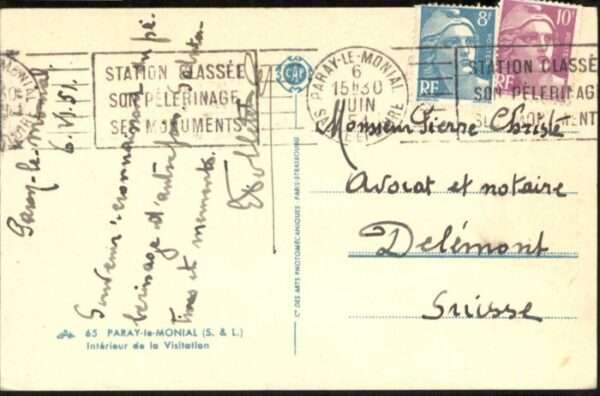 Paray-le-Monial
6.VI.51.
Souvenir reconnaissant du pè-
lerinage d'autrefois. Salutations
et mementos.
65 PARAY-le-MONIAL (S. & L.)
Intérieur de la Visitation
STATION CLASSÉE
SON PÈLERINAGE
SES MONUMENTS
CAP
Cie DES ARTS PHOTOMÉCANIQUES PARIS-STRASBOURG
PARAY-LE-MONIAL
6
15H30
JUIN
8F
RF
10F
RF
STATION CLASSÉ
SON PÈLERINAGE
Monsieur Pierre Christe
Avocat et notaire
Delémont
Suisse